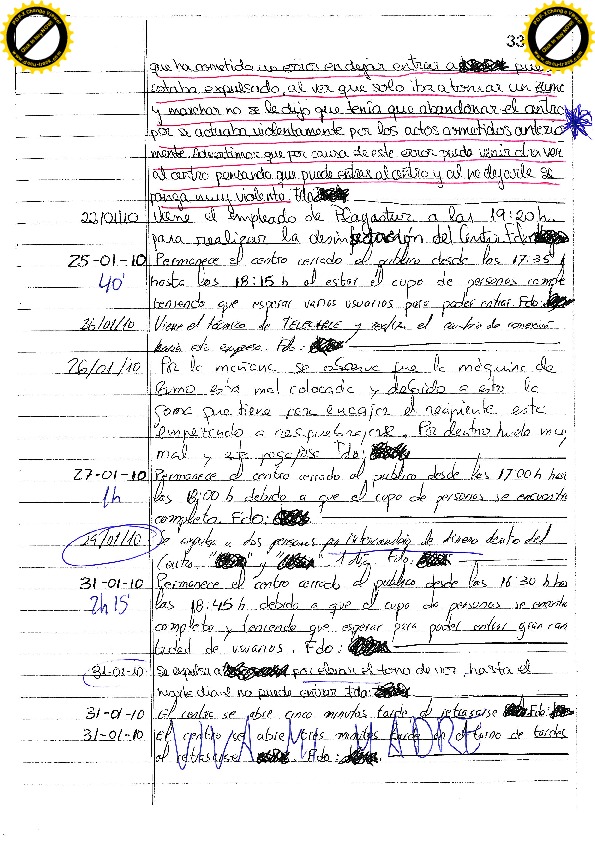 33
que ha cometido un error en dejar entrar a pues
estaba expulsado, al ver que solo iba a tomar un zumo
y marchar no se le dijo que tenía que abandonar el centro
por si actuaba violentamente por los actos cometidos anterior
mente. Advertimos que por causa de este error puede venir otra vez
al centro pensando que puede entrar al centro y al no dejarle se
ponga muy violento. Fdo:
22/01/10 Viene el empleado de Plagastur a las 19:20 h.
para realizar la desinfectación del Centro Fdo:
25-01-10 Permanece el centro cerrado al publico desde las 17:35
40' hasta las 18:15 h al estar el cupo de personas comple
teniendo que esperar varios usuarios para poder entrar. Fdo:
26/01/10 Viene el técnico de TELECABLE y realiza el cambio de conexión
hacia esta empresa. Fdo:
26/01/10 Por la mañana se observa que la máquina de
esta mal colocada y debido a esto la
goma que tiene para encajar el recipiente esta
empezando a resquebrajarse. Por dentro huele muy
mal y esta pegajosa Fdo:
27-01-10 Permanece el centro cerrado al publico desde las 17:00 h has
1h las 18:00 h debido a que el cupo de personas se encuentra
completa. Fdo:
29/01/10 Se expulsa a dos personas por intercambio de dinero dentro del
Centro. " " y " " 1 día Fdo:
31-01-10 Permanece el centro cerrado al publico desde las 16:30 h has
2h 15' las 18:45 h debido a que el cupo de personas se encuentra
completo y teniendo que esperar para poder entrar gran can
tidad de usuarios. Fdo:
31-01-10 Se expulsa a por elevar el tono de voz, hasta el
no puede entrar Fdo:
31-01-10 El centro se abre cinco minutos tarde al retrasarse Fdo:
31-01-10 El centro se abre tres minutos tarde en el turno de tardes
al retrasarse Fdo:
VIVA MI MADRE